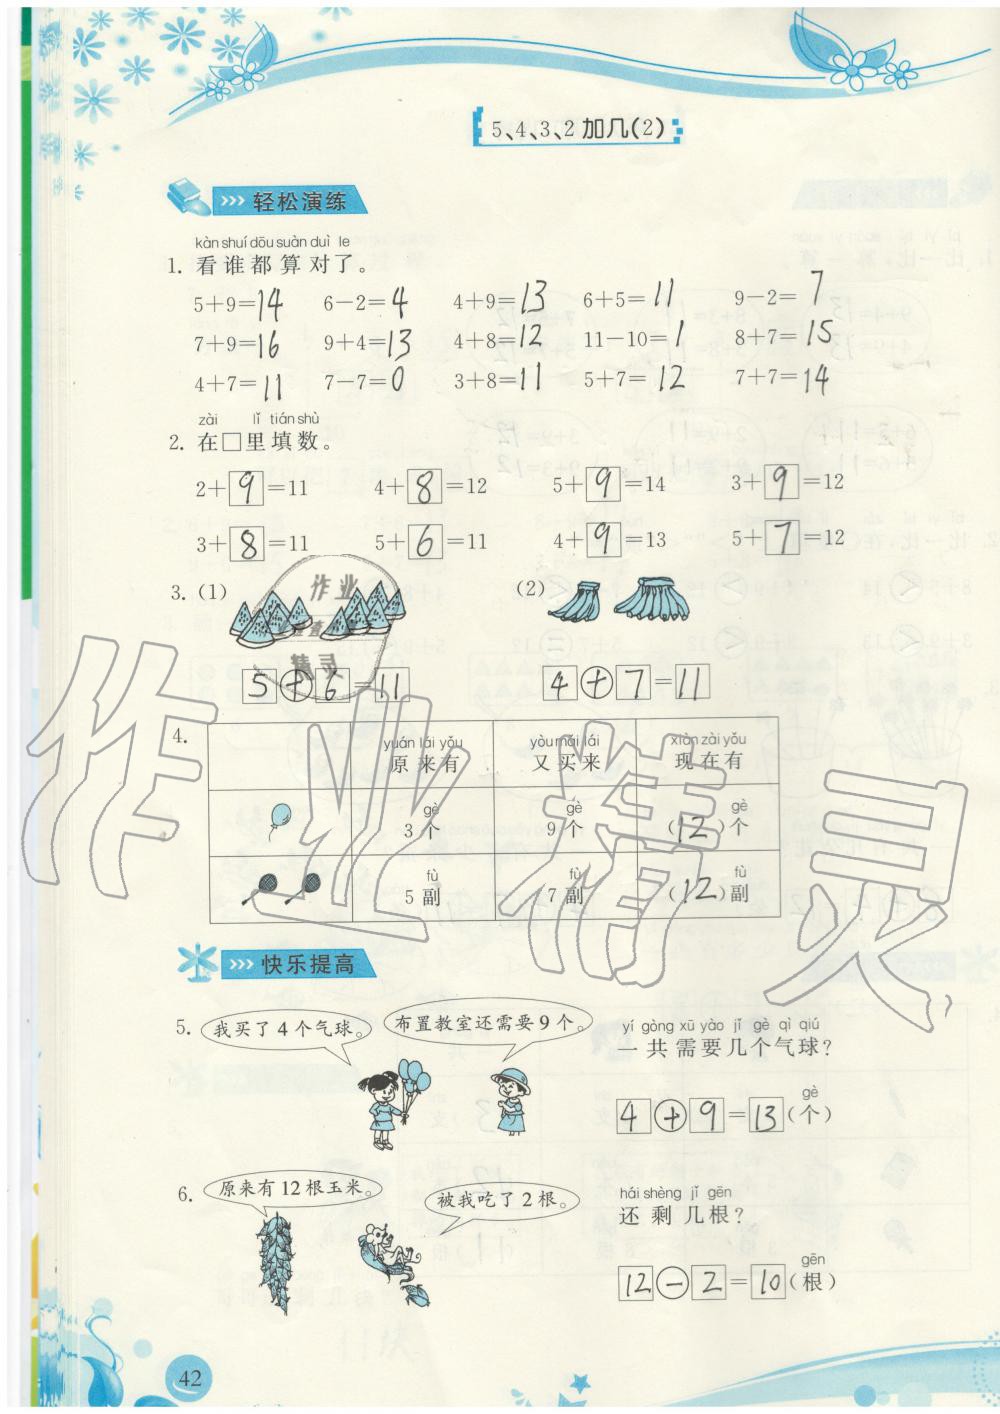 5、4、3、2 加几(2)
轻松演练
kàn shuí dōu suàn duì le
1. 看谁都算对了。
5+9=14 6-2=4 4+9=13 6+5=11 9-2=7
7+9=16 9+4=13 4+8=12 11-10=1 8+7=15
4+7=11 7-7=0 3+8=11 5+7=12 7+7=14
zài lǐ tián shù
2. 在□里填数。
2+9=11 4+8=12 5+9=14 3+9=12
3+8=11 5+6=11 4+9=13 5+7=12
3. (1) (2)
5+6=11 4+7=11
4.
yuán lái yǒu yòu mǎi lái xiàn zài yǒu
原来有 又买来 现在有
gè gè gè
3个 9个 (12)个
fù fù fù
5副 7副 (12)副
快乐提高
5. 我买了4个气球。 布置教室还需要9个。
yí gòng xū yào jǐ gè qì qiú
一共需要几个气球?
gè
4+9=13(个)
6. 原来有12根玉米。 被我吃了2根。
hái shèng jǐ gēn
还剩几根?
gēn
12-2=10(根)
42
作业精灵
作业
检查
精灵